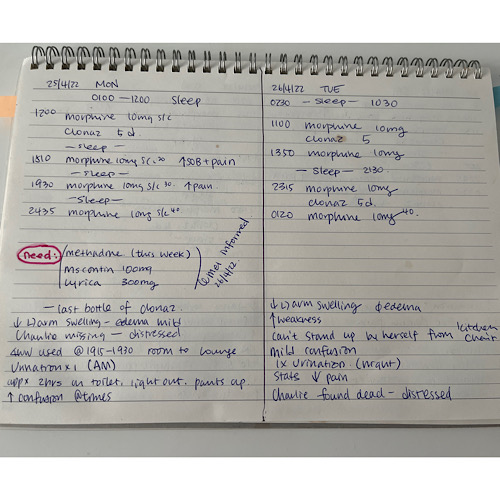 25/4/22 MON
0100 — 1200 Sleep
1200 morphine 10mg s/c
Clonaz 5d.
— Sleep —
1510 morphine 10mg s/c 20 ↑SOB + pain
— Sleep —
1930 morphine 10mg s/c 30. ↑ pain.
— Sleep —
2435 morphine 10mg s/c 40
need: methadone (this week)
Mscontin 100mg
Lyrica 300mg
informed
26/4/22.
— last bottle of clonaz.
↓ L) arm swelling – edema mild
Charlie missing – distressed
4ww used @ 1915-1930 room to lounge
Urination x 1 (AM)
appx 2hrs on toilet, light out, pants up.
↑ confusion @times
26/4/22 TUE
0230 — Sleep — 1030
1100 morphine 10mg
Clonaz 5
1350 morphine 10mg
— Sleep — 2130.
2315 morphine 10mg
clonaz 5d.
0120 morphine 10mg 40.
↓ L) arm swelling edema
↑ weakness
Can't stand up by herself from kitchen chair
mild confusion
1x Urination. (night)
States ↓ pain
Charlie found dead – distressed